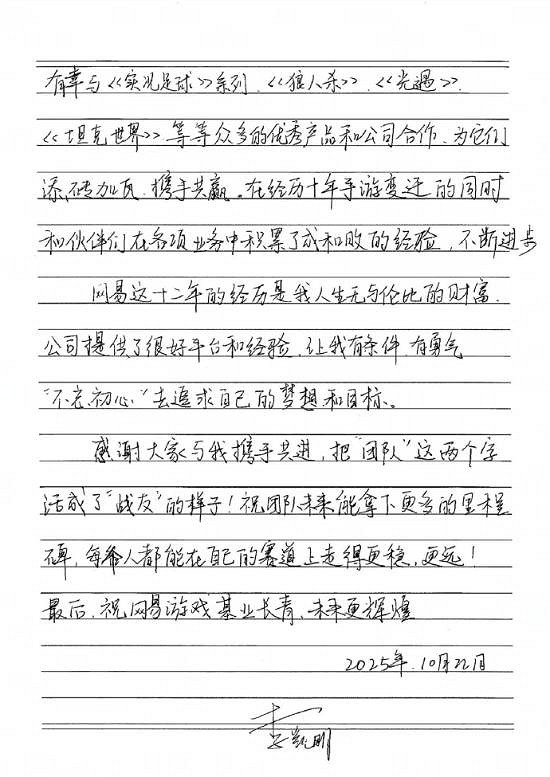 有幸与《实况足球》系列、《狼人杀》、《光遇》、
《坦克世界》等等众多的优秀产品和公司合作、为它们
添砖加瓦、携手共赢。在经历十年手游变迁的同时
和伙伴们在各项业务中积累了成和败的经验，不断进步
网易这十二年的经历是我人生无与伦比的财富.
公司提供了很好平台和经验、让我有条件、有勇气
“不忘初心”去追求自己的梦想和目标。
感谢大家与我携手共进，把“团队”这两个字
活成了“战友”的样子！祝团队未来能拿下更多的里程
碑，每个人都能在自己的赛道上走得更稳、更远！
最后、祝网易游戏基业长青、未来更辉煌
2025年.10月22日
李凯明